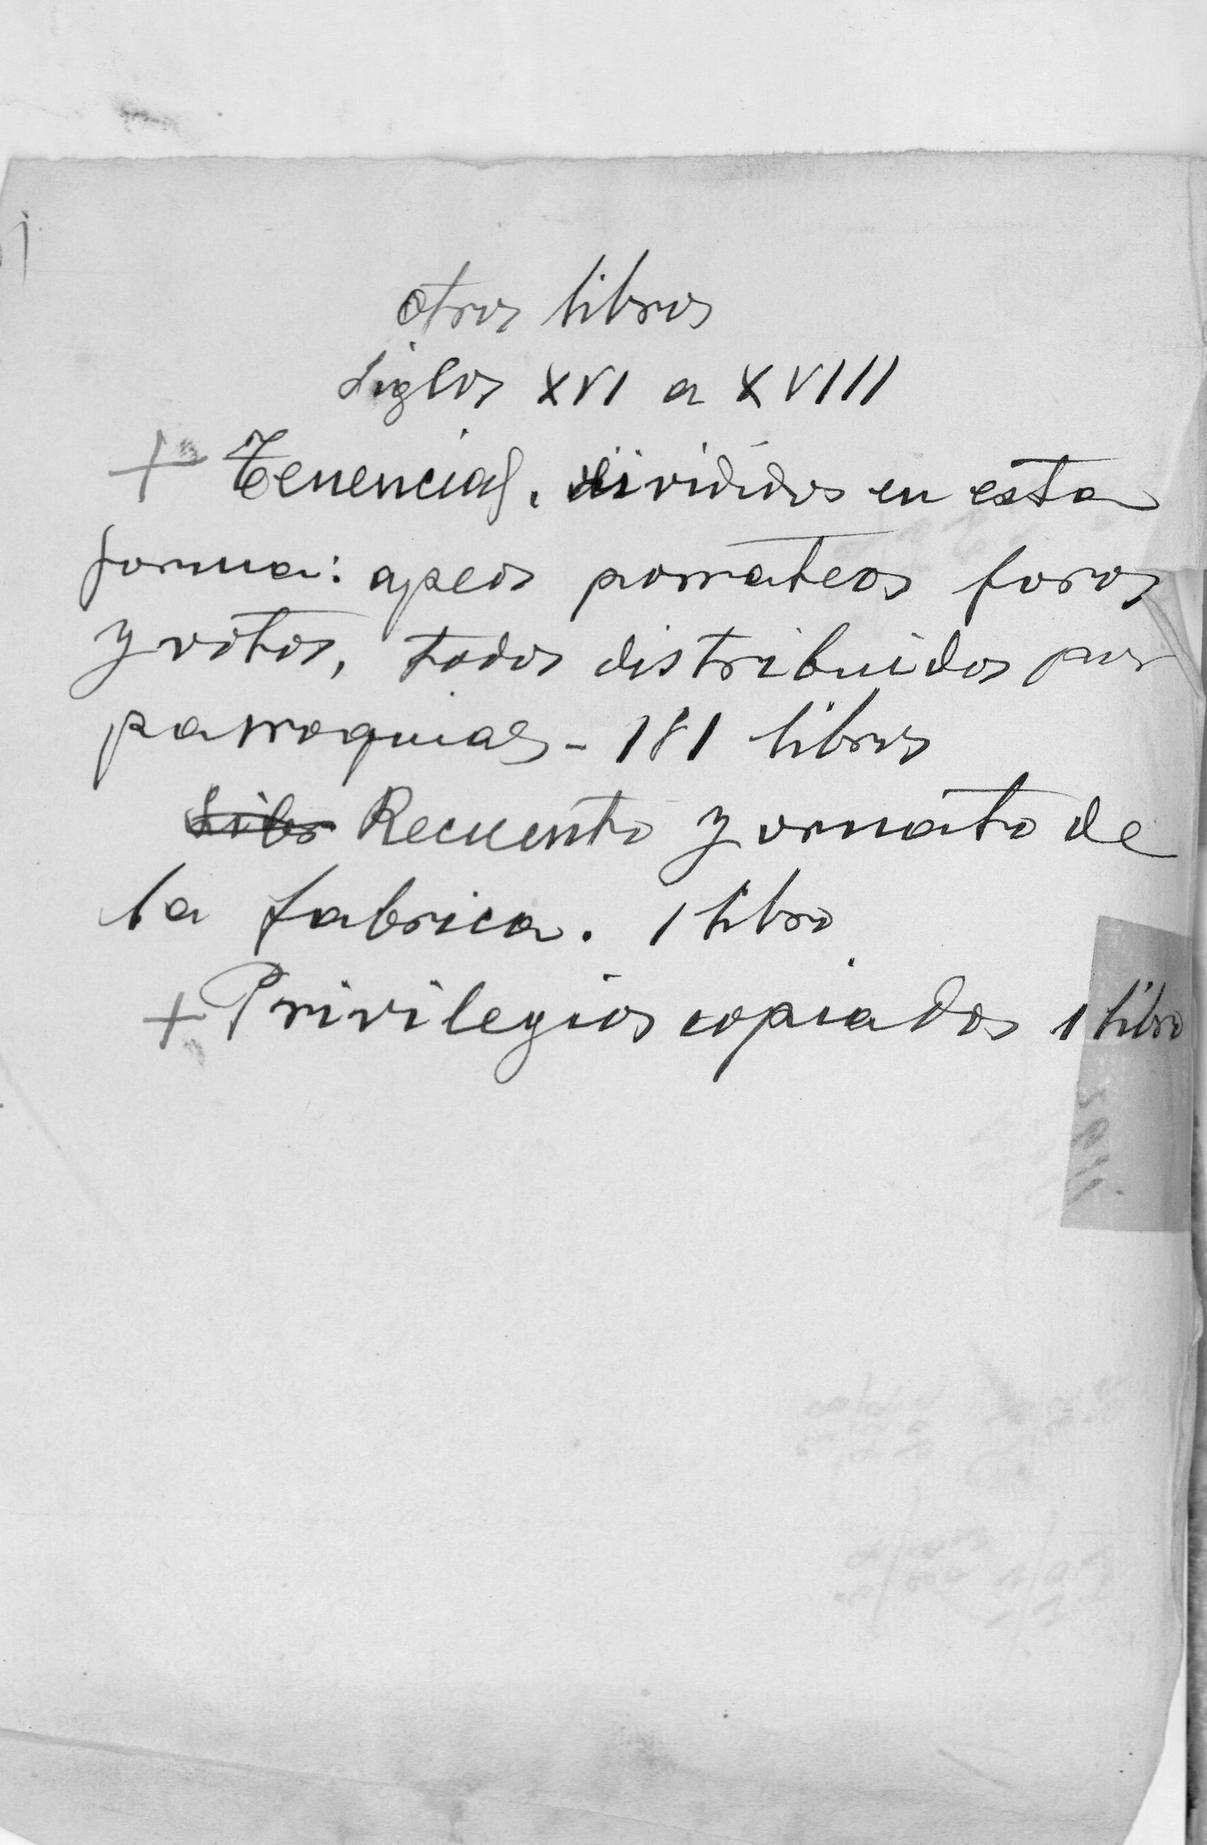 otros libros
siglos XVI a XVIII
+ Tenencias, divididos en esta
forma: apeos prorrateos foros
y votos, todos distribuidos por
parroquias - 181 libros
Libr Recuento y ornato de
la fabrica. 1 libro
+ Privilegios copiados 1 libro